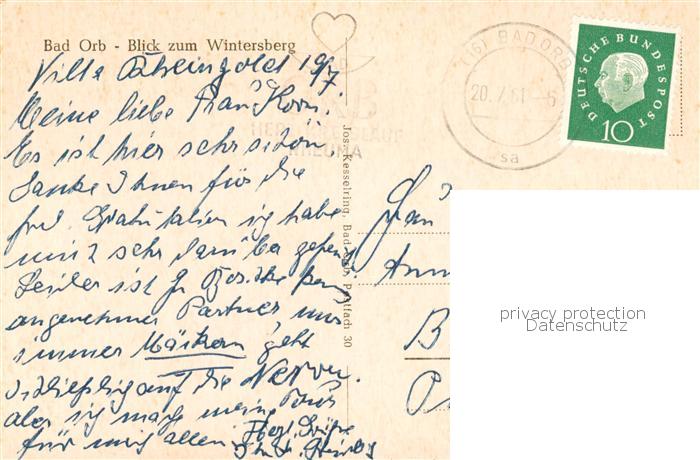 Bad Orb - Blick zum Wintersberg
Villa Rheingold 19/7.
Meine liebe Frau Korn!
Es ist hier sehr schön,
danke Ihnen für die
frdl. Gratulation ich habe
mich sehr darüber gefreut
Leider ist Fr. kein
angenehmer Partner nur
immer Meckern geht
schließlich auf die Nerven.
aber ich mach meine Tour
für mich allein. Herzl. Grüße
Jos. Kesselring, Bad Orb, Postfach 30
(16) BAD ORB
20.7.61.-6
sa
HERZ KREISLAUF
RHEUMA
DEUTSCHE BUNDESPOST
10
Frau
Ann
B
privacy protection
Datenschutz